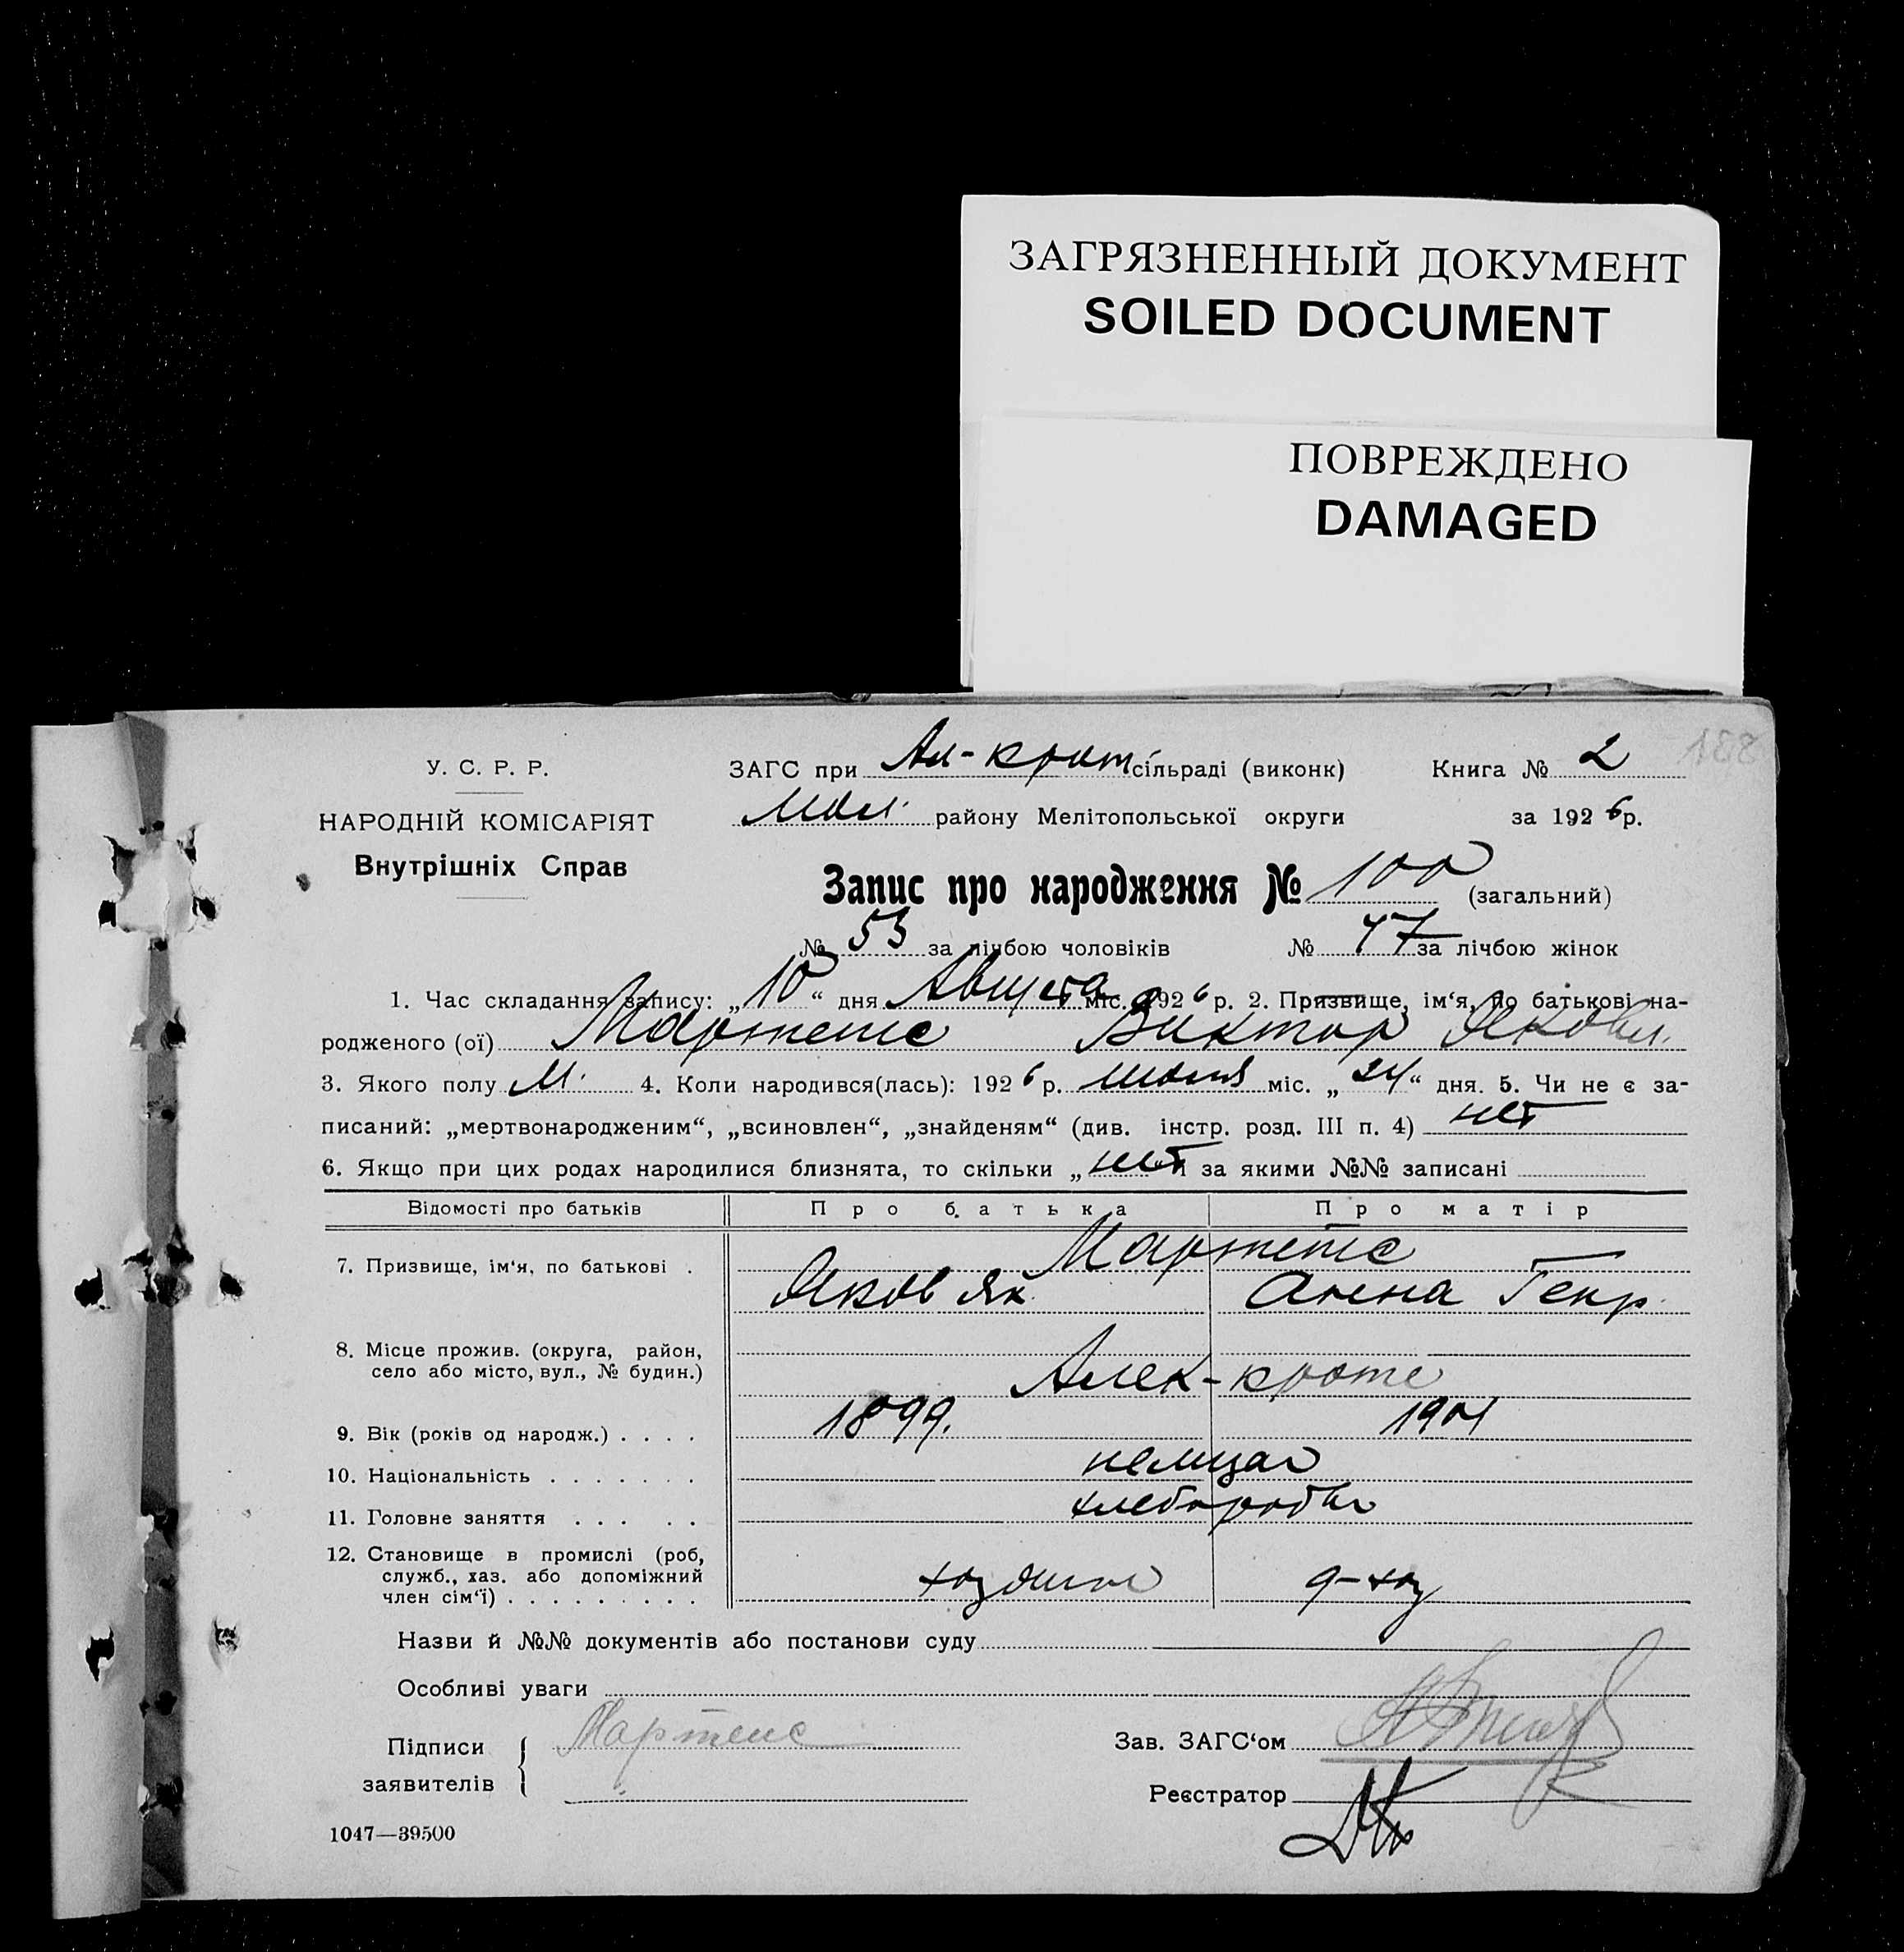 ЗАГРЯЗНЕННЫЙ ДОКУМЕНТ
SOILED DOCUMENT
ПОВРЕЖДЕНО
DAMAGED
188
У. С. Р. Р.
НАРОДНІЙ КОМІСАРІЯТ
Внутрішніх Справ
ЗАГС при Ал-крот сільраді (виконк) Книга № 2
Мол. району Мелітопольської округи за 1926 р.
Запис про народження № 100 (загальний)
№ 53 за лічбою чоловіків № 47 за лічбою жінок
1. Час складання запису: „10“ дня Августа міс. 1926 р. 2. Призвище, ім‘я, по батькові на-
родженого (ої) Мартенс Виктор Яковл.
3. Якого полу М. 4. Коли народився(лась): 1926 р. июля міс. „24“ дня. 5. Чи не є за-
писаний: „мертвонародженим“, „всиновлен“, „знайденям“ (див. інстр. розд. III п. 4) нет
6. Якщо при цих родах народилися близнята, то скільки „нет й за якими №№ записані
Відомості про батьків Про батька Про матір
7. Призвище, ім‘я, по батькові . Мартенс
Яков Як. Анна Генр.
8. Місце прожив. (округа, район,
село або місто, вул., № будин.) Алек-кроне
9. Вік (років од народж.) . . . . 1899. 1901
10. Національність . . . . . . . немцы
11. Головне заняття . . . . . хлеборобы
12. Становище в промислі (роб,
служб., хаз. або допоміжний
член сім‘ї) . . . . . . . . . хозяин д-хоз
Назви й №№ документів або постанови суду
Особливі уваги
Підписи
заявителів
Мартенс
Зав. ЗАГС‘ом
Реєстратор
1047—39500